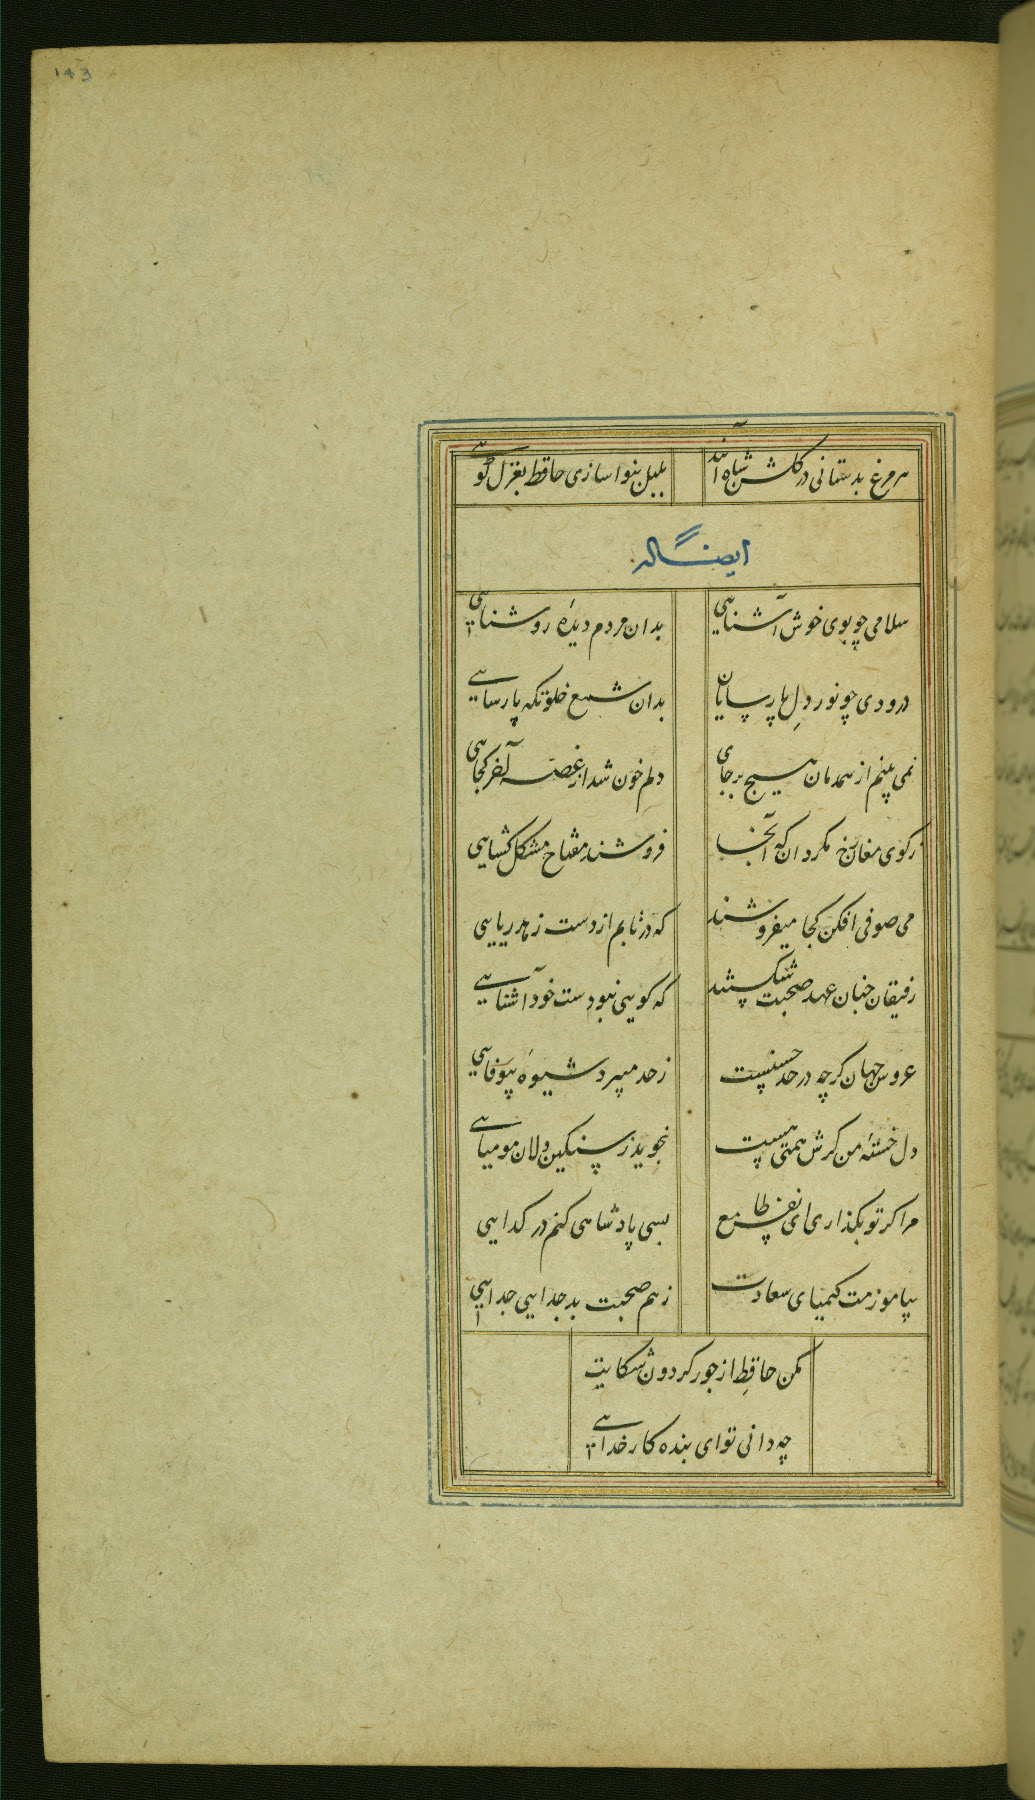 143
هر مرغ بدستانی در گلشن شاه آمد بلبل بنوا سازی حافظ بغزل گویی
ایضاً له
سلامی چو بوی خوش آشنایی بدان مردم دیدهٔ روشنایی
درودی چو نور دل پارسایان بدان شمع خلوتگه پارسایی
نمی‌بینم از همدمان هیچ بر جای دلم خون شد از غصه آخر کجایی
زکوی مغان رخ مگردان که آنجا فروشند مفتاح مشکل گشایی
می صوفی افکن کجا میفروشند که در تابم از دست زهد ریایی
رفیقان چنان عهد صحبت شکستند که گویی نبودست خود آشنایی
عروس جهان گرچه در حد حسنست زحد میبرد شیوهٔ بیوفایی
دل خستهٔ من گرش همتی هست نجوید ز سنگین دلان مومیایی
مرا گر تو بگذاری ای نفس طامع بسی پادشاهی کنم در گدایی
بیاموزمت کیمیای سعادت زهم صحبت بد جدایی جدایی
مکن حافظ از جور گردون شکایت
چه دانی تو ای بنده کار خدایی